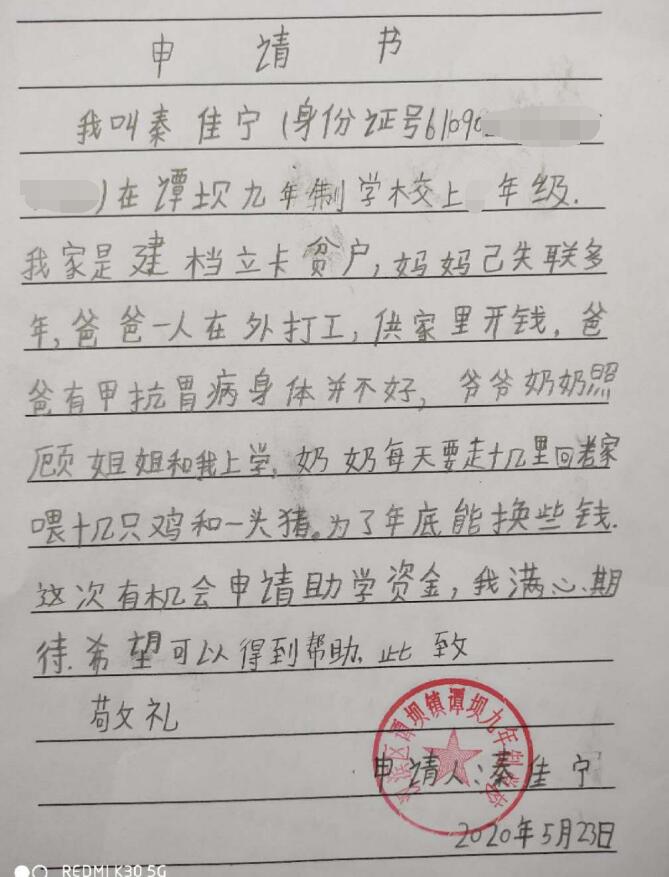 申请书
我叫秦佳宁(身份证号61090
)在谭坝九年制学校上 年级.
我家是建档立卡贫户,妈妈己失联多
年,爸爸一人在外打工,供家里开钱,爸
爸有甲抗胃病身体并不好,爷爷奶奶照
顾姐姐和我上学,奶奶每天要走十几里回老家
喂十几只鸡和一头猪。为了年底能换些钱.
这次有机会申请助学资金,我满心期
待.希望可以得到帮助.此致
敬礼
滨区谭坝镇谭坝九年制学校
申请人:秦佳宁
2020年5月23日
REDMI K30 5G